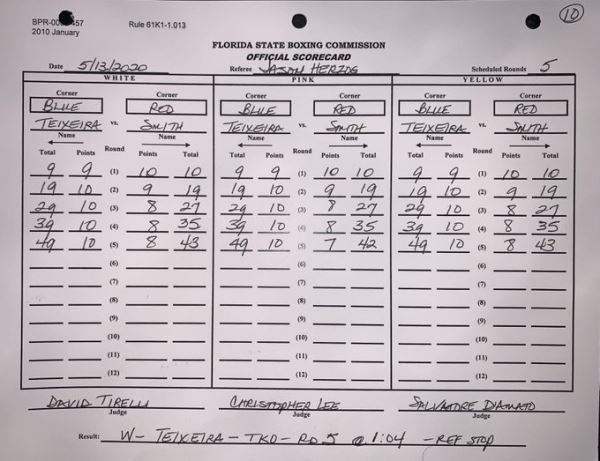 10
BPR-00 457 Rule 61K1-1.013
2010 January
FLORIDA STATE BOXING COMMISSION
OFFICIAL SCORECARD
Date 5/13/2020 Referee JASON HERZOG Scheduled Rounds 5
WHITE PINK YELLOW
Corner Corner Corner Corner Corner Corner
BLUE RED BLUE RED BLUE RED
TEIXEIRA vs. SMITH TEIXEIRA vs. SMITH TEIXEIRA vs. SMITH
Name Name Name Name Name Name
Total Points Round Points Total Total Points Round Points Total Total Points Round Points Total
9 9 (1) 10 10 9 9 (1) 10 10 9 9 (1) 10 10
19 10 (2) 9 19 19 10 (2) 9 19 19 10 (2) 9 19
29 10 (3) 8 27 29 10 (3) 8 27 29 10 (3) 8 27
39 10 (4) 8 35 39 10 (4) 8 35 39 10 (4) 8 35
49 10 (5) 8 43 49 10 (5) 7 42 49 10 (5) 8 43
(6) (6) (6)
(7) (7) (7)
(8) (8) (8)
(9) (9) (9)
(10) (10) (10)
(11) (11) (11)
(12) (12) (12)
DAVID TIRELLI CHRISTOPHER LEE SALVATORE D'AMATO
Judge Judge Judge
Result: W- TEIXEIRA - TKO - RD 5 @ 1:04 - REF STOP